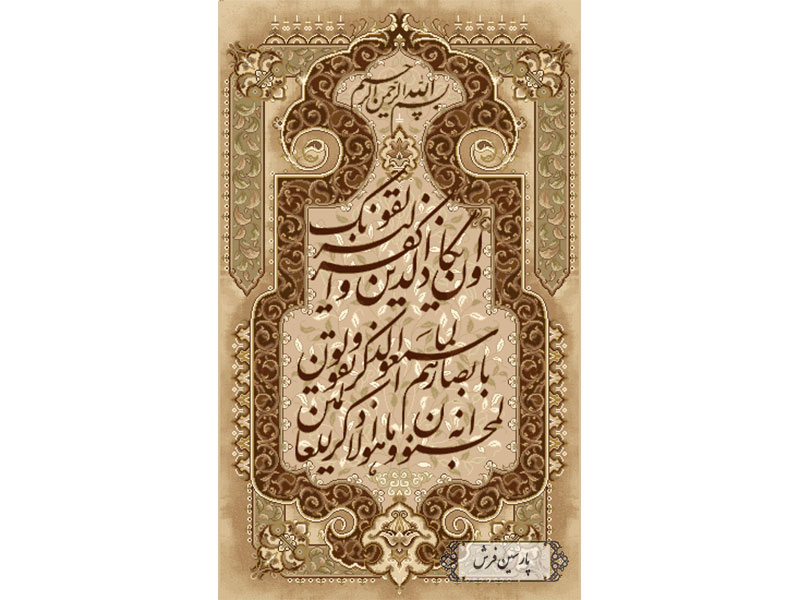 بسم الله الرحمن الرحیم
وان یکاد الذین کفروا لیزلقونک
بابصارهم لما سمعوا الذکر و یقولون
انه لمجنون و ما هو الا ذکر للعالمین
پارسین فرش